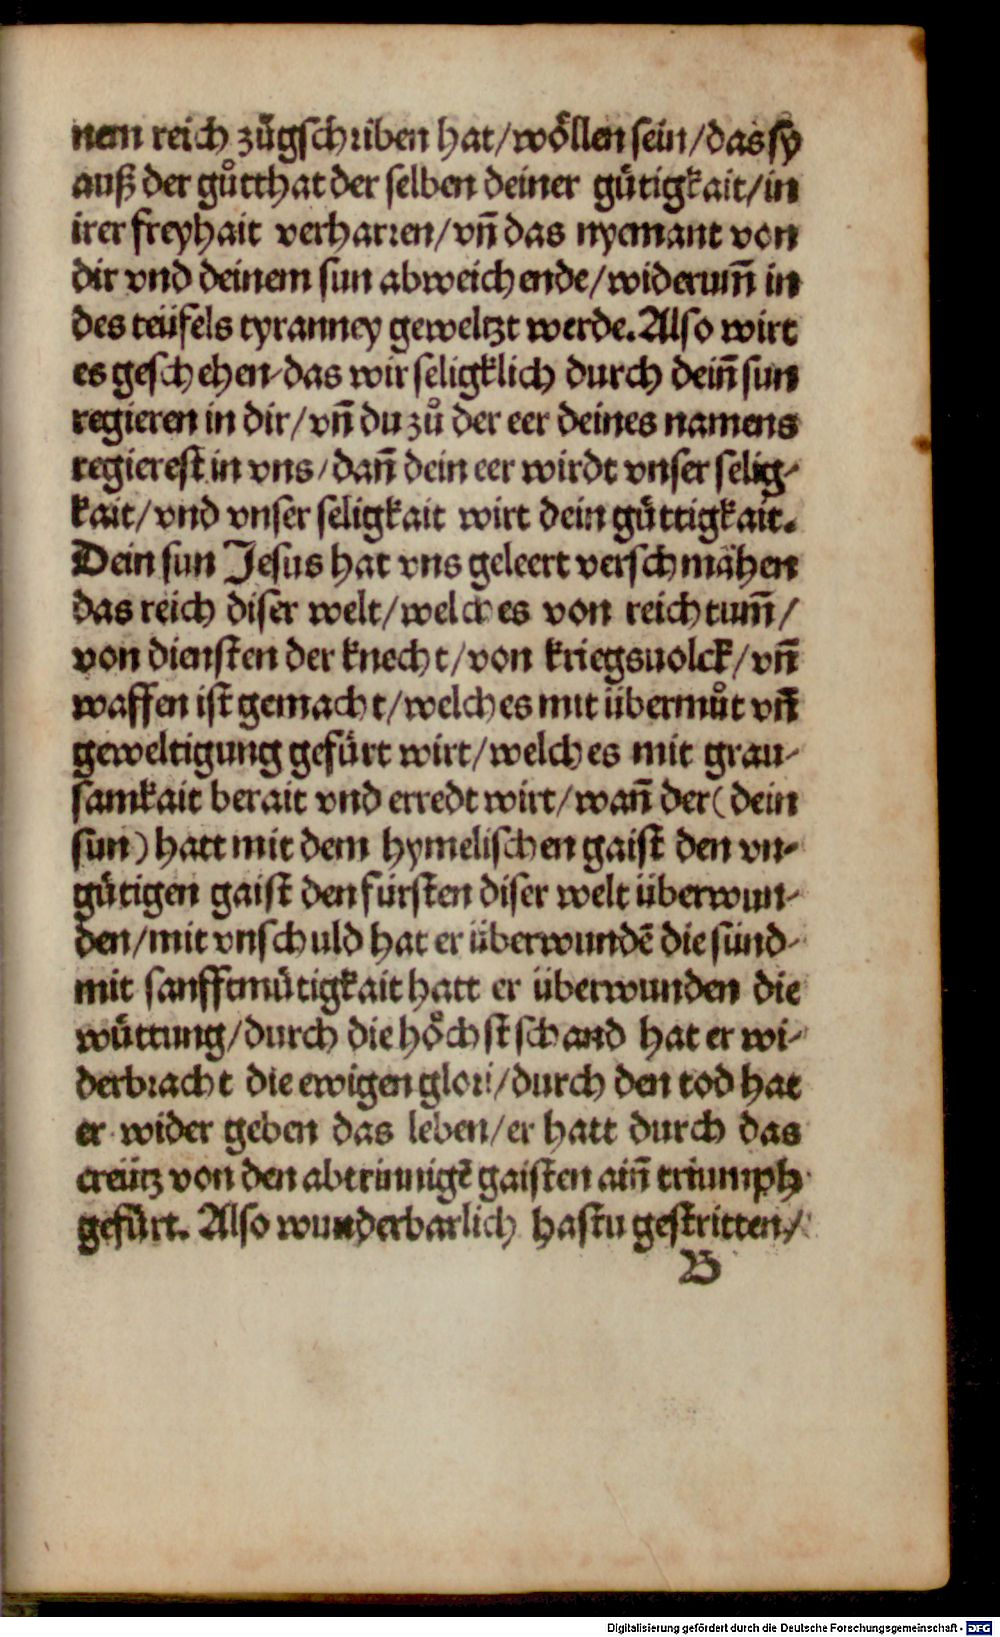 nem reich zůgschriben hat/wöllen sein/das sy
auß der gůtthat der selben deiner gütigkait/in
irer freyhait verharren/vn̄ das nyemant von
dir vnd deinem sun abweichende/widerum̄ in
des teüfels tyranney geweltzt werde. Also wirt
es geschehen/das wir seligklich durch dein̄ sun
regieren in dir/vn̄ du zů der eer deines namens
regierest in vns/dan̄ dein eer wirdt vnser selig⸗
kait/vnd vnser seligkait wirt dein güttigkait.
Dein sun Jesus hat vns geleert verschmähen
das reich diser welt/welches von reichtum̄/
von diensten der knecht/von kriegsuolck/vn̄
waffen ist gemacht/welches mit übermůt vn̄
geweltigung gefürt wirt/welches mit grau⸗
samkait berait vnd erredt wirt/wan̄ der (dein
sun) hatt mit dem hymelischen gaist den vn⸗
gütigen gaist den fürsten diser welt überwun⸗
den/mit vnschuld hat er überwundē die sünd⸗
mit sanfftmütigkait hatt er überwunden die
wüttung/durch die höchst schand hat er wi⸗
derbracht die ewigen glori/durch den tod hat
er wider geben das leben/er hatt durch das
creütz von den abtrinnigē gaisten ain̄ triumph
gefürt. Also wunderbarlich hastu gestritten/
B
Digitalisierung gefördert durch die Deutsche Forschungsgemeinschaft - DFG